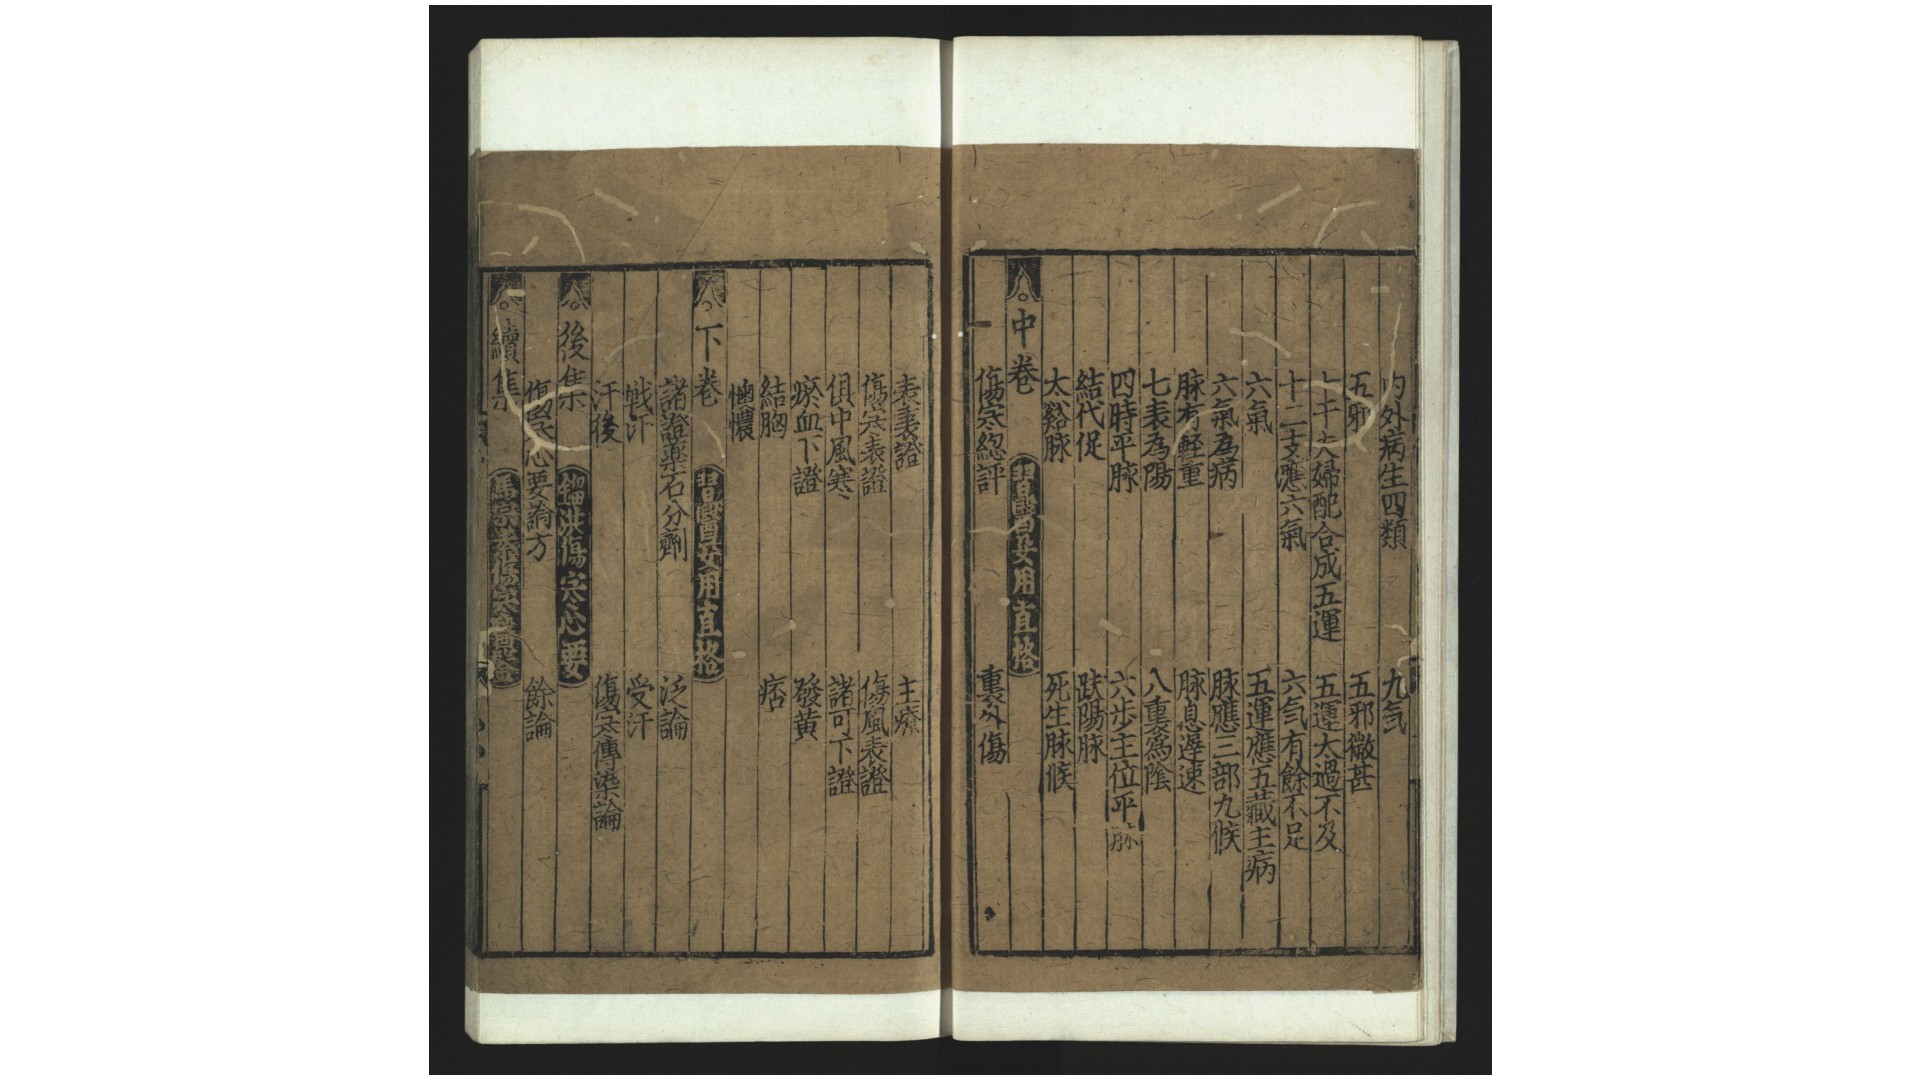 内外病生四類 九気
五邪 五邪微甚
七千夫婦配合成五運 五運太過不及
十二支應六氣 六気有餘不足
六氣 五運應五藏主病
六氣為病 脉應三部九候
脉有軽重 脉息遲速
七表為陽 八裏為陰
四時平脉 六步主位平脉
結代促 趺陽脉
太谿脉 死生脉候
中卷 習醫要用直格
傷寒緫評 裏外傷
表裏證 主療
傷寒表證 傷風表證
俱中風寒 諸可下證
瘀血下證 發黄
結胸 痞
懊憹
下卷 習醫要用直格
諸證藥石分劑 泛論
戰汗 受汗
汗後 傷寒傳染論
後集 鎦洪傷寒心要
傷寒心要論方 餘論
續集 馬宗素傷寒醫鑒